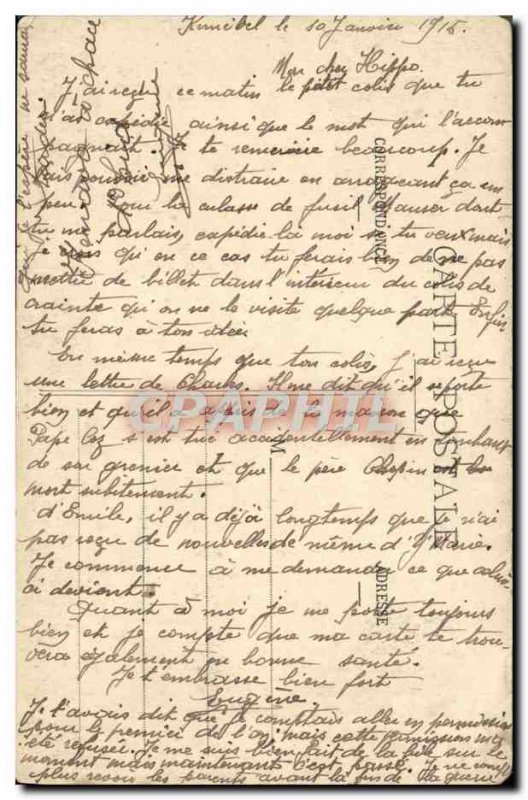 le 10 Janvier 1915.
Mon cher Hippo.
J'ai reçu ce matin le petit colis que tu
m'as expédié ainsi que le mot qui l'accom
pagnait. Je te remercie beaucoup. Je
vais pouvoir me distraire en arrangeant ça un
peu. Pour la culasse de fusil Mauser dont
tu me parlais, expédie la moi si tu veux mais
je crois qu'en ce cas tu ferais bien de ne pas
mettre de billet dans l'intérieur du colis de
crainte qu'on ne le visite quelque part. Enfin
tu feras à ton idée.
En même temps que ton colis, j'ai reçu
une lettre de Charles. Il me dit qu'il se porte
bien et qu'il a appris de la maison que
Pape s'est tué accidentellement en tombant
de son grenier et que le père
mort subitement.
d'Emile, il y a déjà longtemps que je n'ai
pas reçu de nouvelles de même d'
Je commence à me demander ce que cela
a devient.
Quant à moi je me porte toujours
bien et je compte que ma carte te trou-
vera également en bonne santé.
Je t'embrasse bien fort
Eugène.
Je t'avais dit que je comptais aller en permission
pour le premier de l'an, mais cette permission m'a
été refusée. Je me suis bien fait de la bile sur le
moment mais maintenant c'est passé. Je ne compte
plus revoir les parents avant la fin de la guerre
CARTE POSTALE
CORRESPONDANCE
ADRESSE
CAPHIL